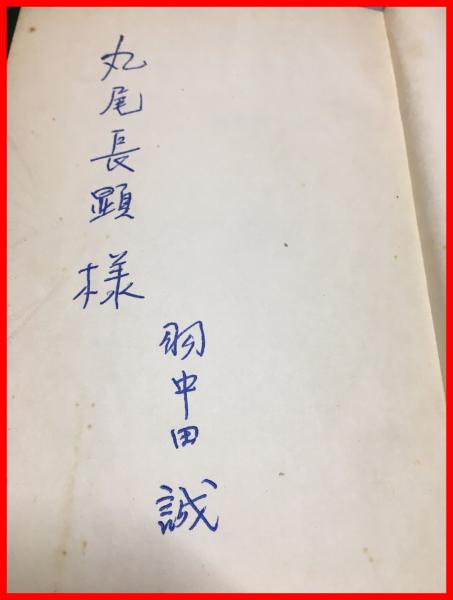 丸尾長顕様
羽中田誠